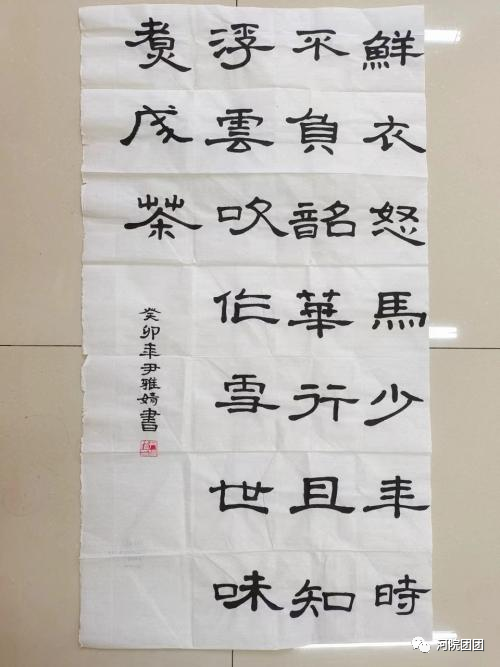 鮮衣怒馬少年時
不負韶華行且知
浮雲吹作雪世味
煮成茶
癸卯年尹雅婧書
河院团团